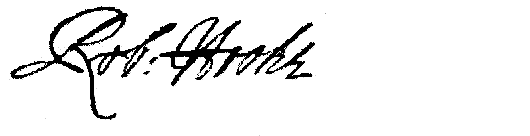 Rob. Hooke